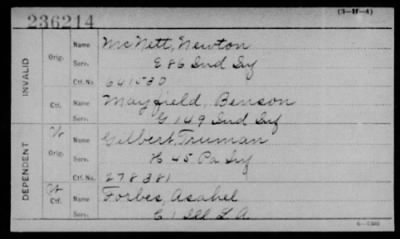 (3-1f-4)
236214
INVALID
Orig.
Name McNett, Newton
Serv. E 86 Ind Inf
Ctf. No. 641530
Ctf.
Name Mayfield, Benson
Serv. G 149 Ind Inf
DEPENDENT
Orig.
Name Gilbert, Truman
Serv. H 45 Pa Inf
Ctf. No. 278381
Ctf.
Name Forbes, Asahel
Serv. E 1 Ill L A